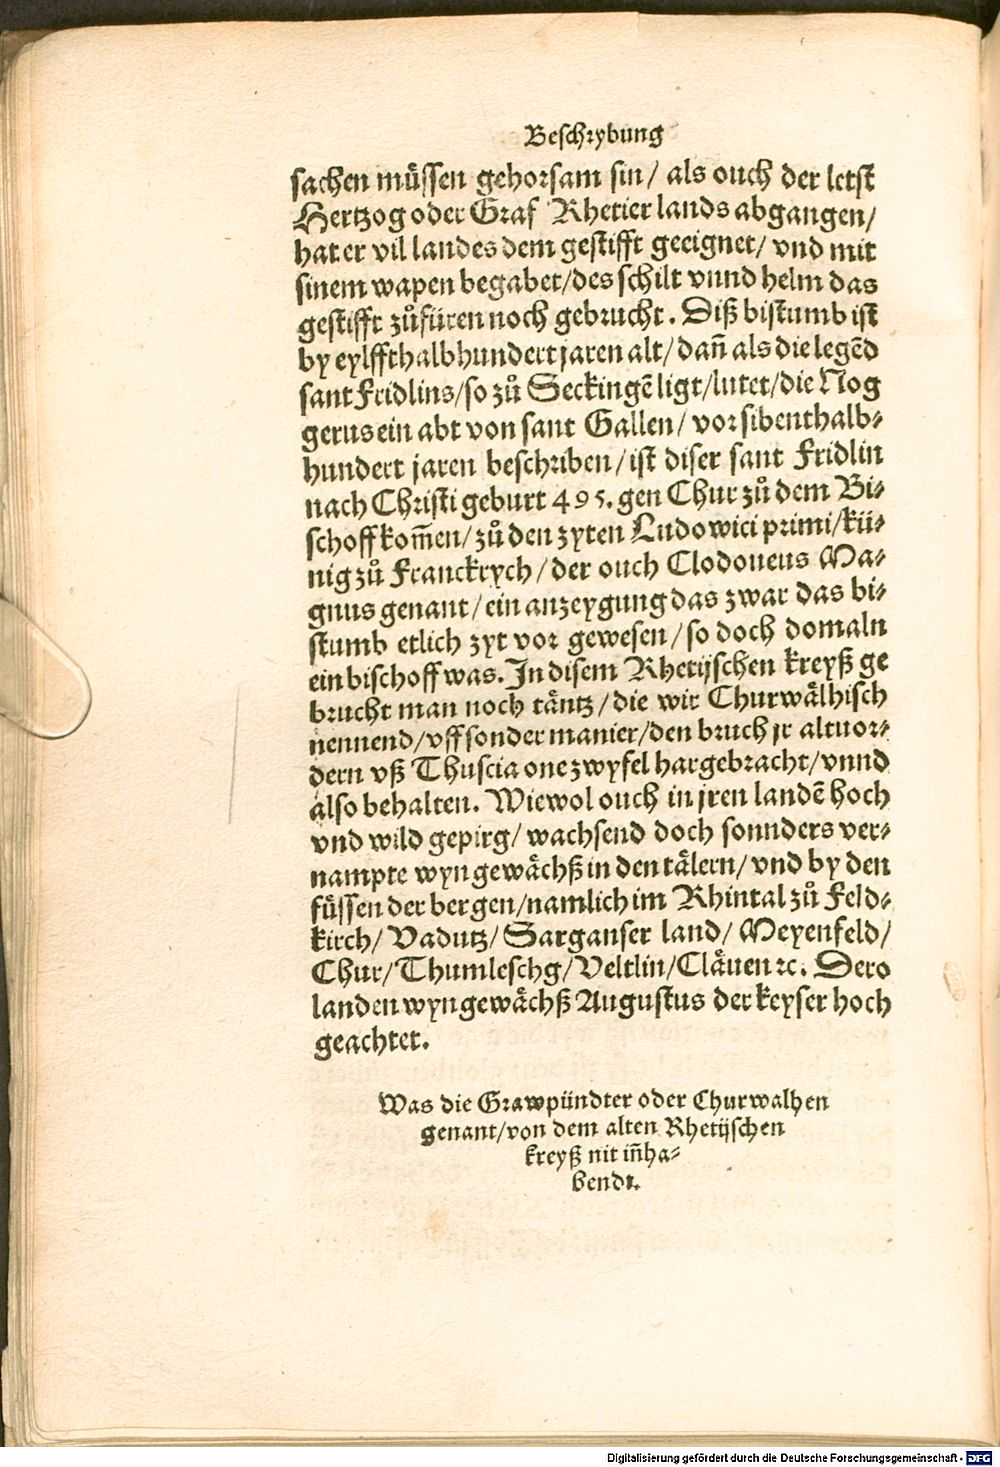 Beschrybung
sachen müssen gehorsam sin/ als ouch der letst
Hertzog oder Graf Rhetier lands abgangen/
hat er vil landes dem gestifft geeignet/ vnd mit
sinem wapen begabet/des schilt vnnd helm das
gestifft zůfüren noch gebrucht. Diß bistumb ist
by eylffthalbhundert jaren alt/ dañ als die legẽd
sant Fridlins/so zů Seckingẽ ligt/lutet/die Nog
gerus ein abt von sant Gallen/ vor sibenthalb-
hundert jaren beschriben/ist diser sant Fridlin
nach Christi geburt 495. gen Chur zů dem Bi-
schoff kom̃en/ zů den zyten Ludowici primi/kü-
nig zů Franckrych/der ouch Clodoueus Ma-
gnus genant/ein anzeygung das zwar das bi-
stumb etlich zyt vor gewesen/so doch domaln
ein bischoff was. In disem Rhetijschen kreyß ge
brucht man noch täntz/die wir Churwälhisch
nennend/vff sonder manier/den bruch jr altuor-
dern vß Thuscia one zwyfel hargebracht/vnnd
also behalten. Wiewol ouch in jren landẽ hoch
vnd wild gepirg/ wachsend doch sonnders ver-
nampte wyngewächß in den tälern/ vnd by den
füssen der bergen/namlich im Rhintal zů Feld-
kirch/ Vadutz/ Sarganser land/ Meyenfeld/
Chur/Thumleschg/Veltlin/Cläuen ꝛc. Dero
landen wyngewächß Augustus der keyser hoch
geachtet.
Was die Grawpündter oder Churwalhen
genant/von dem alten Rhetijschen
kreyß nit iñha-
bendt.
Digitalisierung gefördert durch die Deutsche Forschungsgemeinschaft - DFG